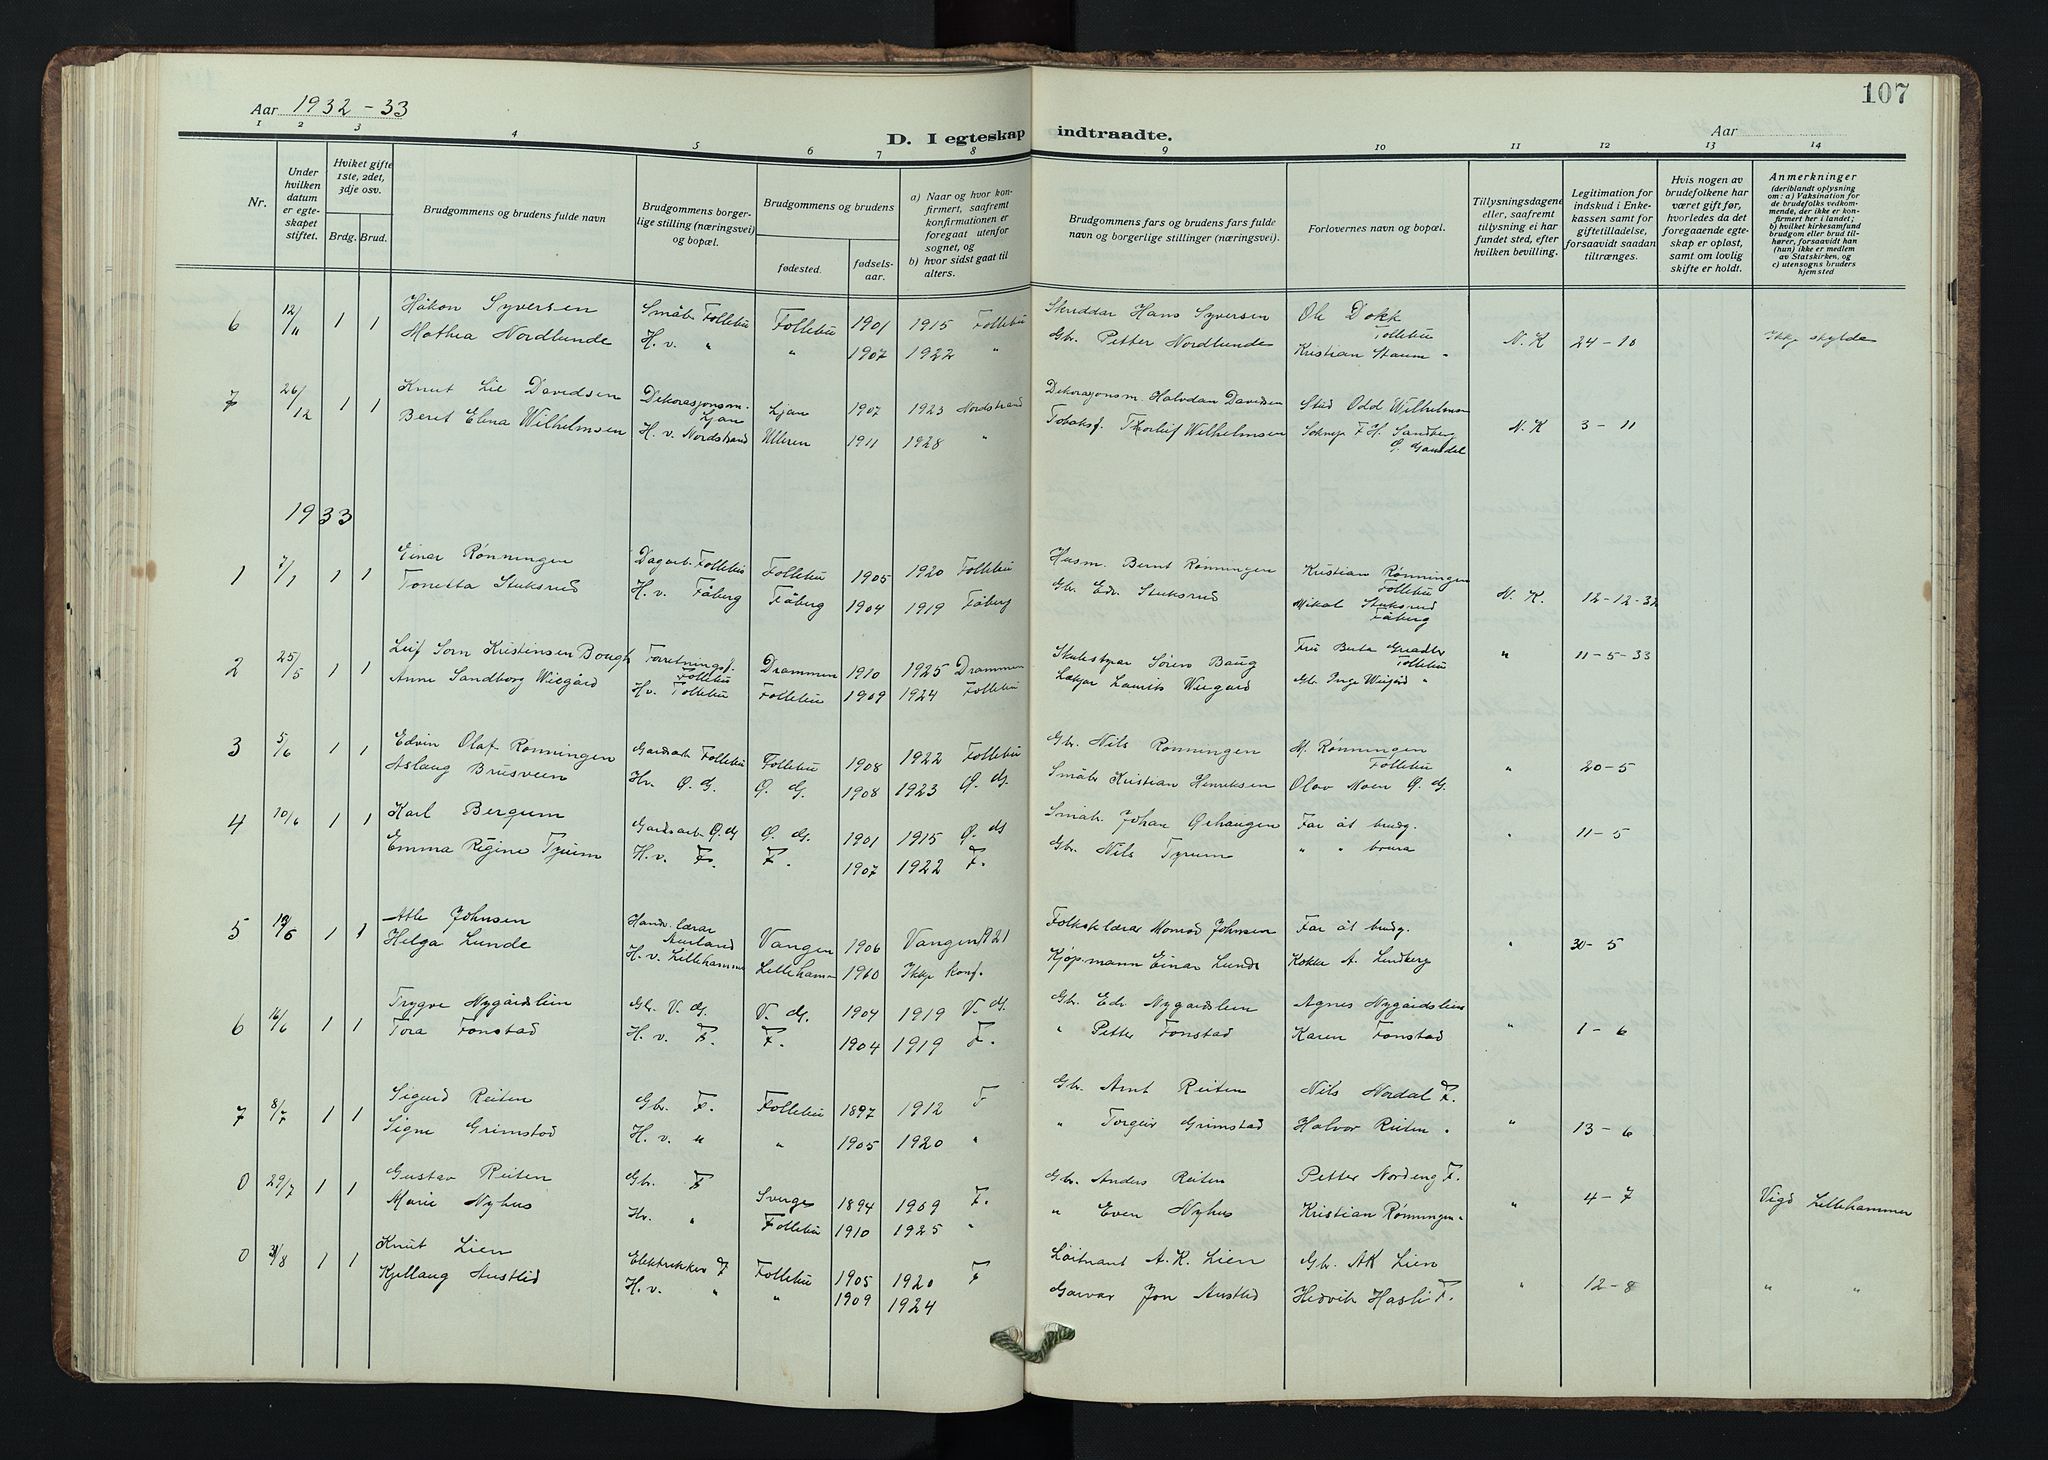 107
Aar 1932-33
D. I egteskap indtraadte.
Aar
1 2 3 4 5 6 7 8 9 10 11 12 13 14
Nr.
Under hvilken datum er egteskapet stiftet.
Hviket gifte 1ste, 2det, 3dje osv.
Brdg. Brud.
Brudgommens og brudens fulde navn
Brudgommens borgerlige stilling (næringsvei) og bopæl.
Brudgommens og brudens
fødested.
fødselsaar.
a) Naar og hvor konfirmert, saafremt konfirmationen er foregaat utenfor sognet, og
b) hvor sidst gaat til alters.
Brudgommens fars og brudens fars fulde navn og borgerlige stillinger (næringsvei).
Forlovernes navn og bopæl.
Tillysningsdagene eller, saafremt tillysning ei har fundet sted, efter hvilken bevilling.
Legitimation for indskud i Enkekassen samt for giftetilladelse, forsaavidt saadan tiltrænges.
Hvis nogen av brudefolkene har været gift før, hvorledes da det foregaaende egteskap er opløst, samt om lovlig skifte er holdt.
Anmerkninger
(deriblandt oplysning om: a) Vaksination for de brudefolks vedkommende, der ikke er konfirmert her i landet; b) hvilket kirkesamfund brudgom eller brud tilhører, forsaavidt han (hun) ikke er medlem av Statskirken, og c) utensogns bruders hjemsted
6 12/11 1 1 Håkon Syversen Småbr. Follebu Follebu 1901 1915 Follebu Skreddar Hans Syversen Ole Dokk Follebu N. K 24-10 Ikkje skylde
Mathea Nordlunde H. v. " " 1907 1922 " Gbr. Petter Nordlunde Kristian Staum "
7 26/12 1 1 Knut Lie Davidsen Dekorasjonsm. Ljan Ljan 1907 1923 Nordstrand Dekorasjonsm. Halvdan Davidsen Stud Odd Wilhelmsen N. K 3-11
Beret Elena Wilhelmsen H. v. Nordstrand Ulleren 1911 1928 " Tobaksf. Thorleif Wilhelmsen Soknepr F. H. Sandberg Ø. Gausdal
1933
1 7/1 1 1 Einar Rønningen Dagarb. Follebu Follebu 1905 1920 Follebu Husm. Bernt Rønningen Kristian Rønningen Follebu N. K. 12-12-32
Tonetta Stuksrud H. v. Fåberg Fåberg 1904 1919 Fåberg Gbr. Edv. Stuksrud Mikal Stuksrud Fåberg
2 25/5 1 1 Leif Sorn Kristensen Baugh Forretningsf. Follebu Drammen 1910 1925 Drammen Skulestyrar Sören Baug Fru Follebu " 11-5-33
Anne Sandborg Wiegård H. v. Follebu Follebu 1909 1924 Follebu Lækjar Laurits Weigard Gbr. Inge Weigård "
3 5/6 1 1 Edvin Olaf Rønningen Gardsarb Follebu Follebu 1908 1922 Follebu Gbr. Nils Rønningen M. Rønningen Follebu " 20-5
Aslaug Brusveen Hv. Ø. G. Ø. G. 1908 1923 Ø. G. Småbr Kristian Henriksen Olav Moen Ø. G.
4 10/6 1 1 Karl Bergum Gardsarb Ø. G Ø. G. 1901 1915 Ø. G Småbr. Johan Ørhaugen Far åt brudg. " 11-5
Emma Regine Tyrum H. v. F. F. 1907 1922 F. Gbr. Nils Tyrum " " brura
5 1 1 Atle Johnsen Handv. lærar Aurland Vangen 1906 Vangen 1921 Folkskulærar Monrad Johnsen Far åt brudg. " 30-5
Helga Lunde H. v. Lillehammer Lillehammer 1910 Ikkje konf. Kjøpmann Einar Lunde Kokke A. Lundberg
6 16/6 1 1 Trygve Nygårdslien Gbr. V. G. V. G. 1904 1919 V. G. Gbr. Edv. Nygårdslein Agnes Nygårdslien " 1-6
Tora Fonstad H. v. F. F. 1904 1919 F. " Petter Fonstad Karen Fonstad
7 8/7 1 1 Sigurd Reiten Gbr. F. Follebu 1897 1912 F Gbr. Arnt Reiten Nils Nordal F. " 13-6
Signe Grimstad H. v. " " 1905 1920 " " Torgeir Grimstad Halvor Reiten "
0 29/7 1 1 Gustav Reiten Gbr. F Sverge 1894 1909 F. Gbr. Anders Reiten Petter Nordeng F. " 4-7 Vigd Lillehammer
Marie Nyhus Hv. " Follebu 1910 1925 " " Even Nyhus Kristian Rønningen "
0 31/8 1 1 Knut Lien Elektrikker F Follebu 1905 1920 F Løitnant A. K. Lien Gbr. AK Lien " 12-8 " "
Kjellaug Austlid H. v. " " 1909 1924 Garvar Jon Austlid Hedvik Hasli F.